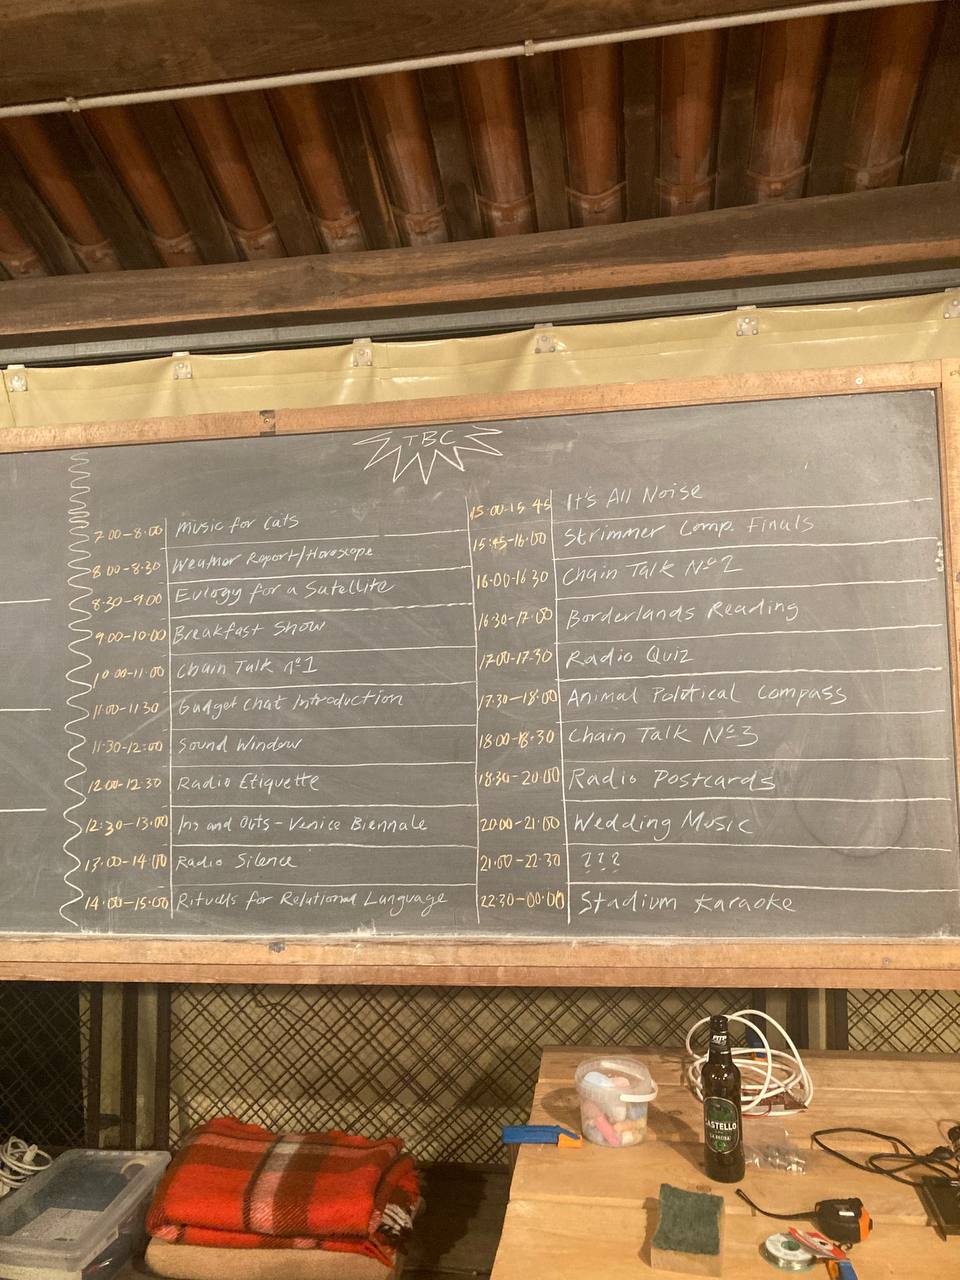 TBC
7.00-8.00 Music for Cats
8.00-8.30 Weather Report/Horoscope
8.30-9.00 Eulogy for a Satellite
9.00-10.00 Breakfast Show
10.00-11.00 Chain Talk Nº1
11.00-11.30 Gadget Chat Introduction
11.30-12:00 Sound Window
12.00-12.30 Radio Etiquette
12:30-13.00 Ins and Outs - Venice Biennale
13.00-14.00 Radio Silence
14.00-15.00 Rituals for Relational Language
15.00-15.45 It's All Noise
15:45-16.00 Strimmer Comp. Finals
16.00-16.30 Chain Talk Nº2
16.30-17.00 Borderlands Reading
17.00-17.30 Radio Quiz
17.30-18.00 Animal Political Compass
18.00-18.30 Chain Talk Nº3
18.30-20.00 Radio Postcards
20.00-21.00 Wedding Music
21.00-22.30 ???
22.30-00.00 Stadium Karaoke
CASTELLO